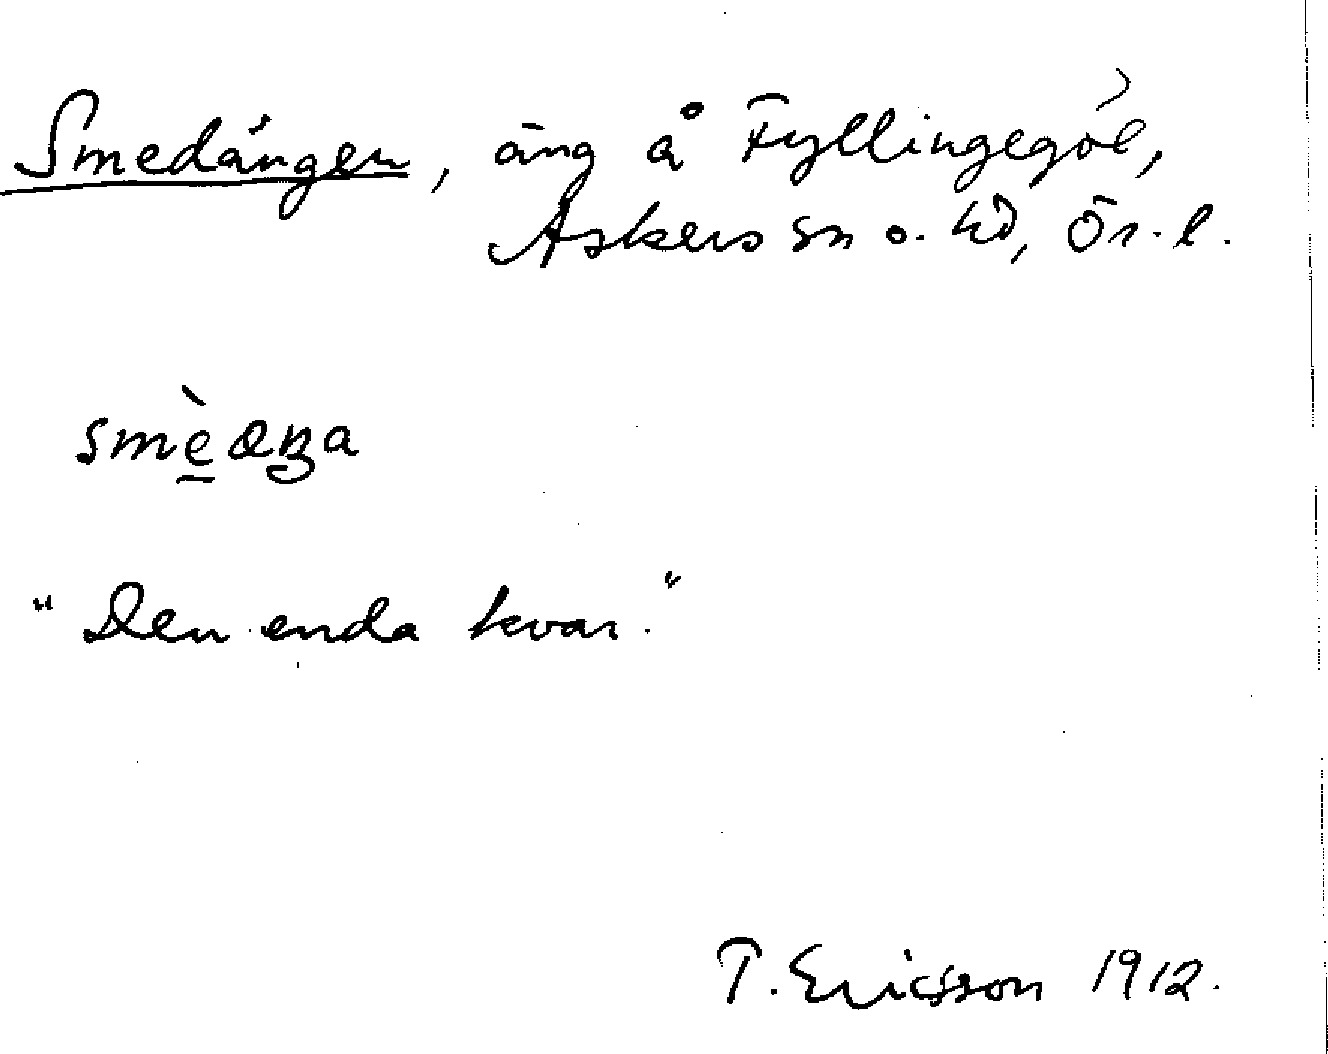 Smedängen, äng å Fyllingegöl,
Askers sn o. hd, Ör. l.
smèæŋa
"Den enda kvar."
T. Ericsson 1912.